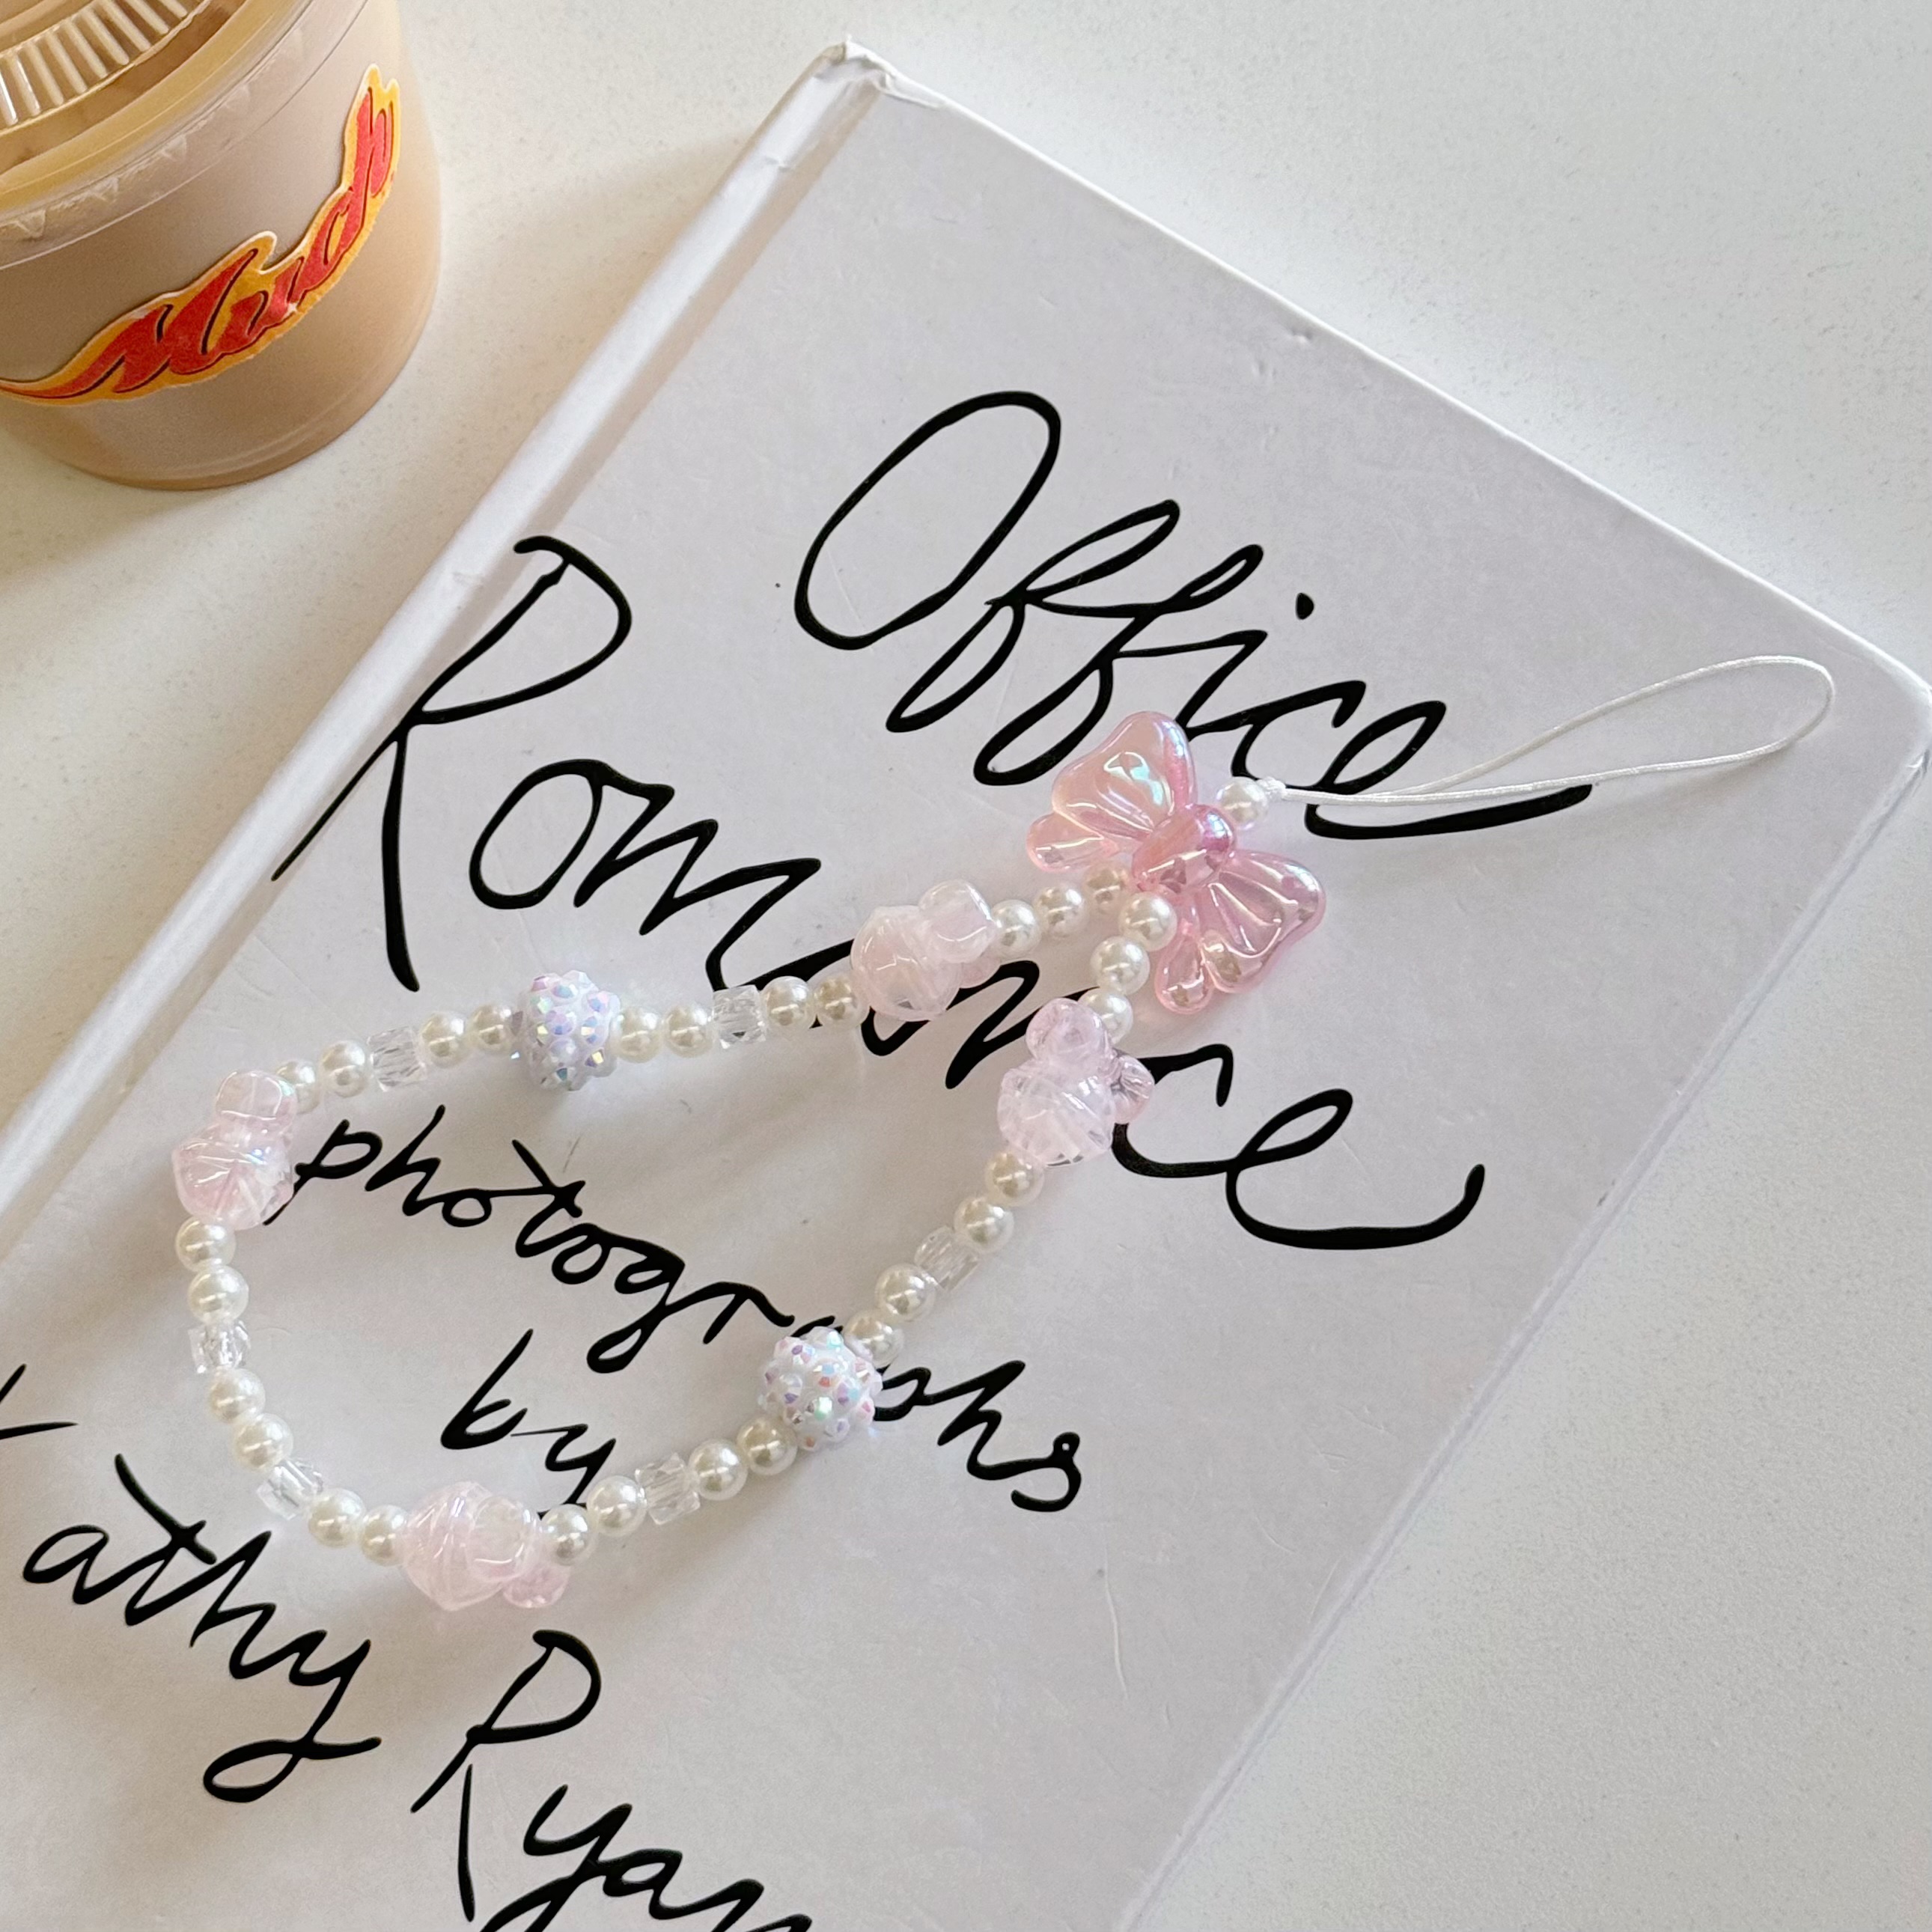 Mudh
Office
Romance
photographs
by
Kathy Ryan